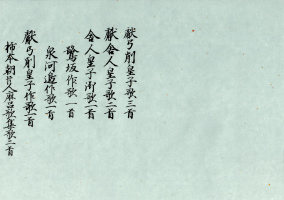 献弓削皇子歌三首
献舎人皇子歌二首
舎人皇子御歌一首
鷺坂作歌一首
泉河邊作歌一首
献弓削皇子作歌一首
柿本朝臣人麻呂歌集歌二首